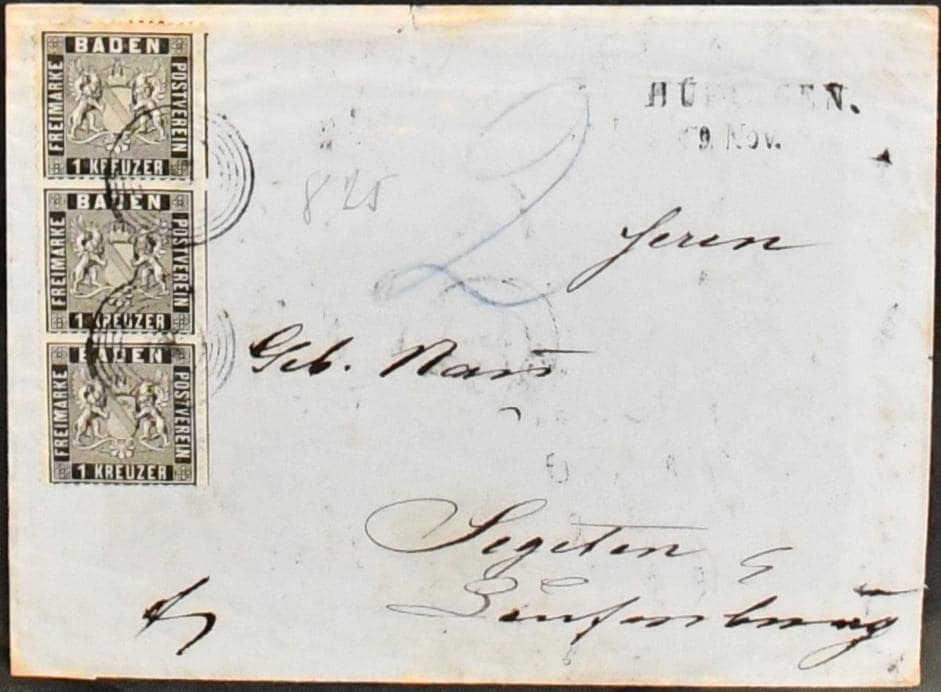 BADEN
FREIMARKE
POSTVEREIN
1 KREUZER
BADEN
FREIMARKE
POSTVEREIN
1 KREUZER
BADEN
FREIMARKE
POSTVEREIN
1 KREUZER
9. Nov.
825
2
Herrn
Geb.
Segeten
Laufenburg